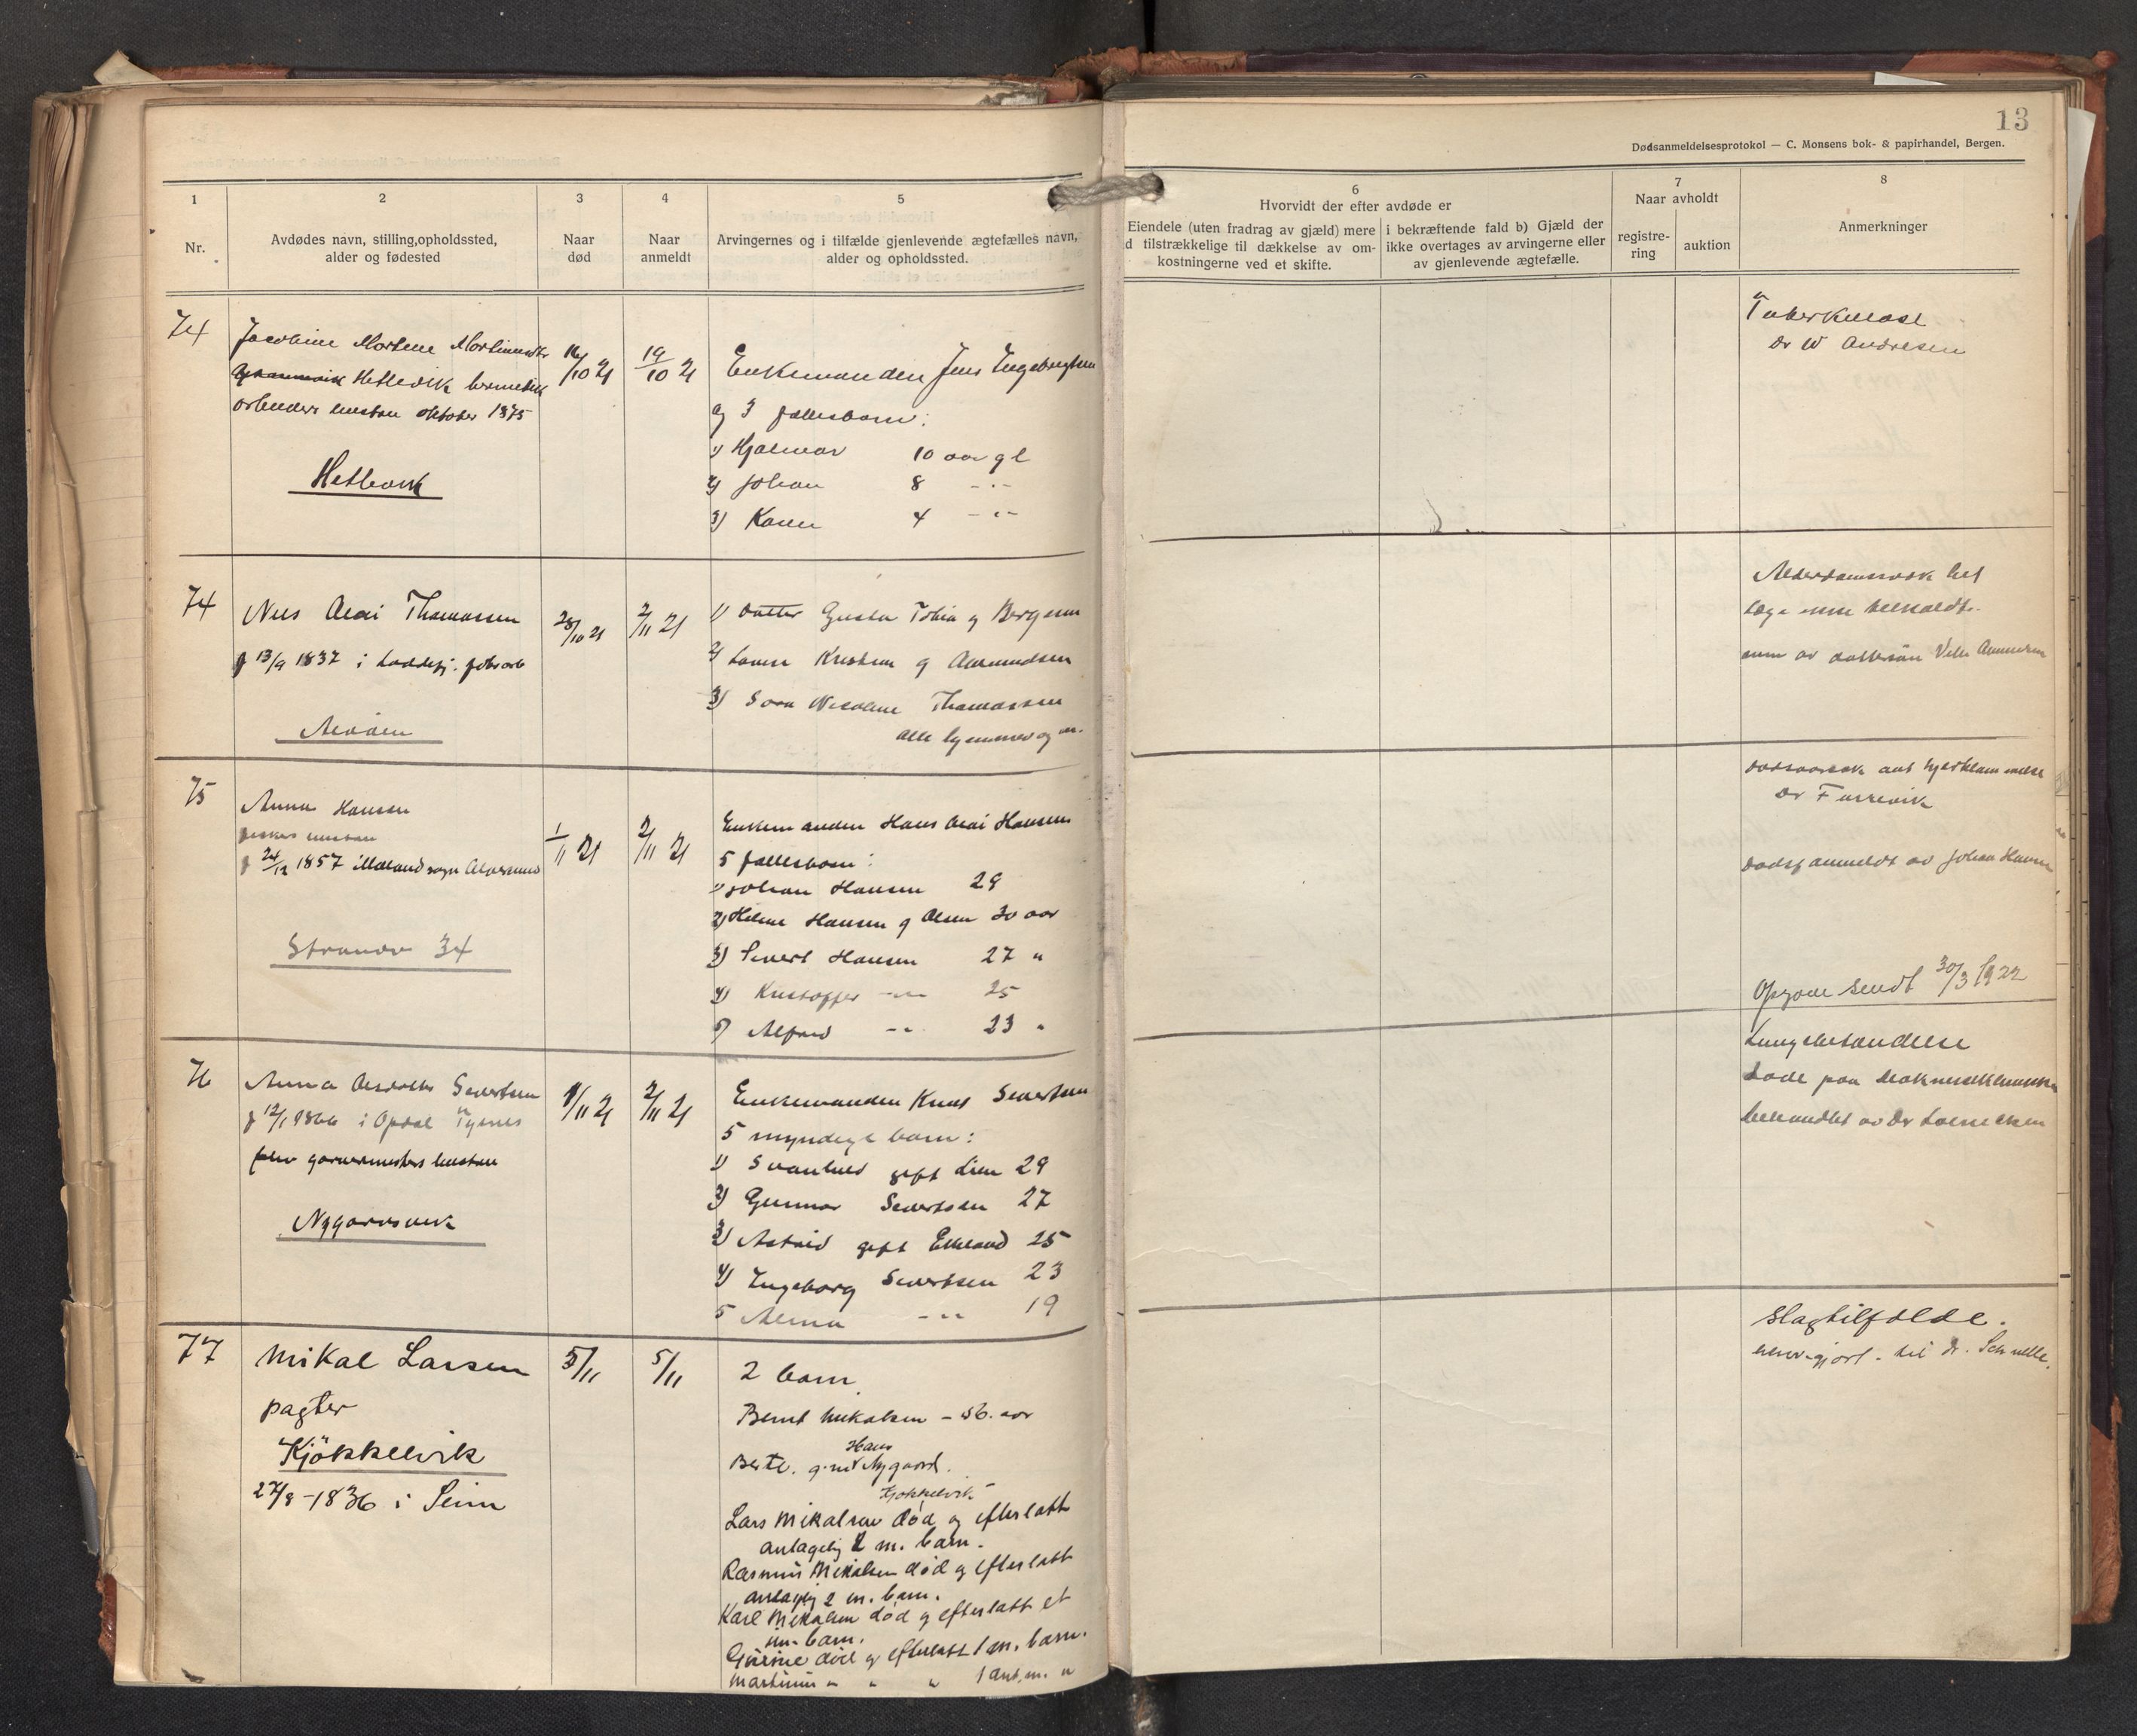 13
Dødsanmeldelsesprotokol — C. Monsens bok- & papirhandel, Bergen.
1
Nr.
2
Avdødes navn, stilling, opholdssted,
alder og fødested
3
Naar
død
4
Naar
anmeldt
5
Arvingernes og i tilfælde gjenlevende ægtefælles navn,
alder og opholdssted.
6
Hvorvidt der efter avdøde er
Eiendele (uten fradrag av gjæld) mere
d tilstrækkelige til dækkelse av om-
kostningerne ved et skifte.
i bekræftende fald b) Gjæld der
ikke overtages av arvingerne eller
av gjenlevende ægtefælle.
7
Naar avholdt
registre-
ring
auktion
8
Anmerkninger
74
Jacobine Mortine
Hetlevik
arbeiders hustru oktober 1875
Hetlevik
16/10 21
19/10 21
Enkemanden Jens Ingebrigtsen
og 3 fællesbarn:
1) Hjalmar 10 aar gl
2) Johan 8 -"-
3) Karen 4 -"-
Tuberkulose
Dr W Andresen
74
Nils Olai Thomassen
f 13/9 1837 i Laddefj.
Alvøen
28/10 21
2/11 21
1) datter Gusta Tobia g Bergesen
2) Lovise Kristine g Aamundsen
3) Sara Nicoline Thomassen
alle
læge
av dattersøn
75
Anna Hansen
fiskers hustru
f 24/12 1857 i sogn Alversund
Strandv 34
1/11 21
2/11 21
Enkemanden Hans Olai Hansen
5 fællesbarn:
1) Johan Hansen 29
2) Helene Hansen g Olsen 30 aar
3) Sivert Hansen 27 "
4) Kristoffer -"- 25
5) Alfred -"- 23 "
dødsaarsak ant hjertelammelse
Dr Farrevik
dødsf anmeldt av Johan Hansen
Opgave sendt 30/3 1922
76
Anna Sivertsen
f 12/1 1866 i Opdal Tysnes
garvermesters hustru
Nygaardsvik
1/11 21
2/11 21
Enkemanden Knut Sivertsen
5 myndige barn:
1) Svanhild gift Lien 29
2) Gunnar Sivertsen 27
3) Astrid gift Ekeland 25
4) Ingeborg Sivertsen 23
5 Alma -"- 19
Lungebetændelse
Døde paa
behandlet av Dr
77
Mikal Larsen
pagter
Kjøkkelvik
27/8 - 1836 i Seim
5/11
5/11
2 barn
Bernt Mikalsen - 56. aar
Berte. g. m Hans Nygaard.
Kjøkkelvik
Lars Mikalsen død og efterlatt
antagelig 2 m. barn.
Rasmus Mikalsen død og efterlatt
antagelig 2 m. barn.
Karl Mikalsen død og efterlatt et
um. barn.
død og efterlatt 1 m. barn.
Martinus " " " 1 ant. m. "
Slagtilfælde.
til dr. Schnelle.